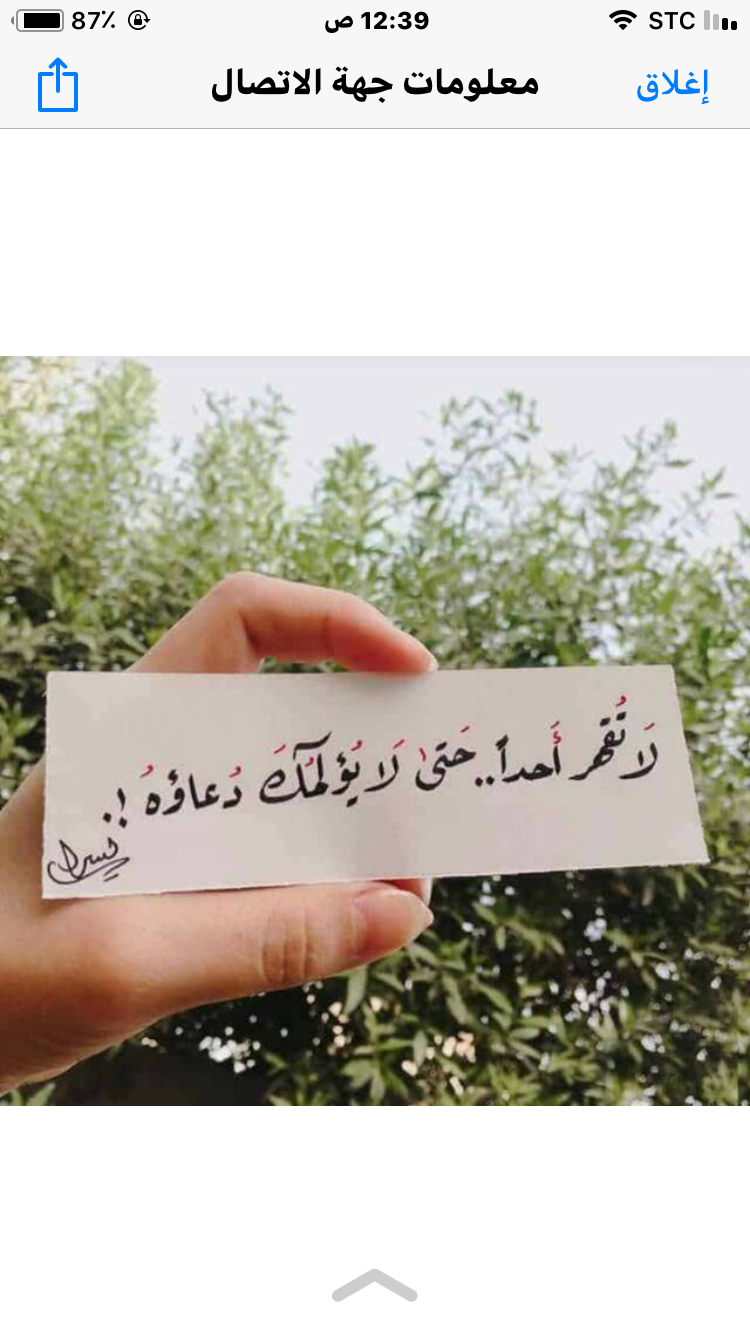 87٪ 12:39 ص STC
إغلاق معلومات جهة الاتصال
لَا تُقهر أَحداً.. حَتىٰ لَا يُؤلمُكَ دُعاؤهُ !.